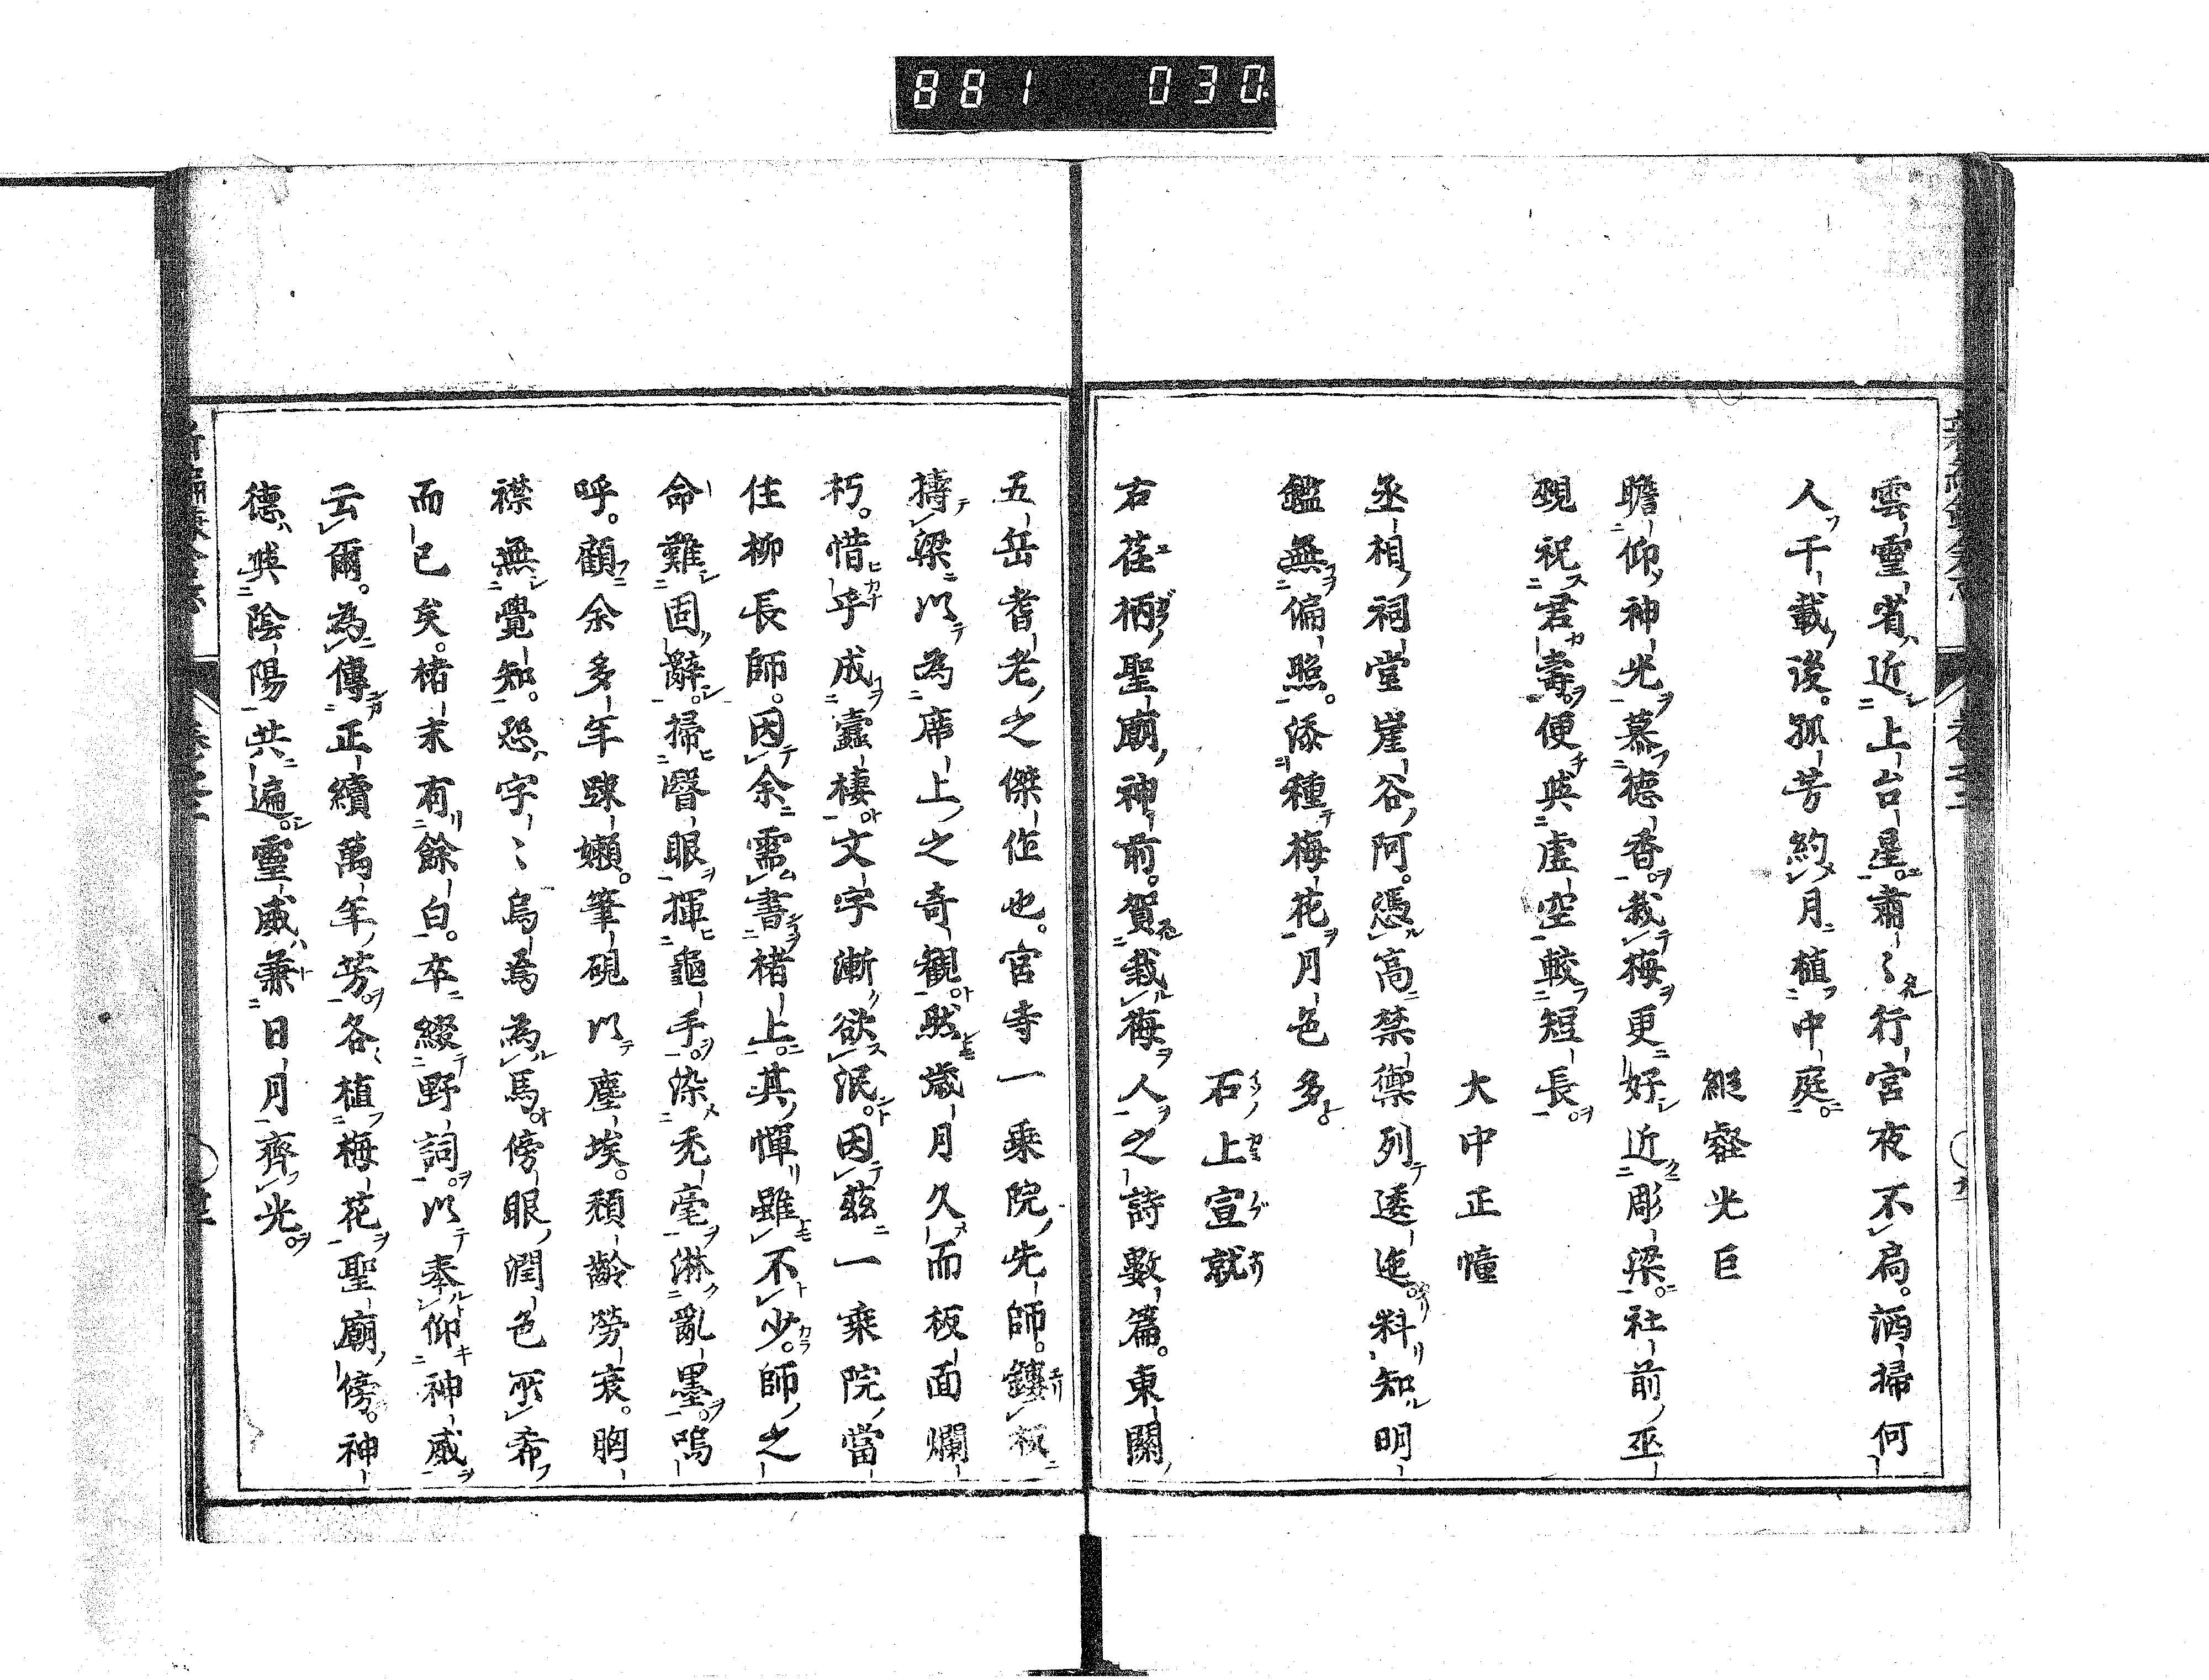 881 030
雲霊省近上台星肅〻行宮夜不扃洒掃何
人千載後孤芳約月植中庭
縦睿光巨
瞻仰神光慕德香栽梅更好近彫梁社前巫
覡祝君壽便與虚空較短長
大中正幢
丞相祠堂崖谷阿憑高禁籞列透迤料知明
鑑無偏照添種梅花月色多
石上宣就
右荏柄聖廟神前賀栽梅人之詩數篇東關
五岳耆老之傑作也宮寺一乗院先師鏤板
擣梁以為席上之奇観然歳月久而板面爛
朽惜乎成蠧棲文字漸欲泯因茲一乗院當
住柳長師因余需書楮上其憚雖不少師之
命難固辭掃瞖眼揮龜手染禿毫淋亂墨嗚
呼顧余多年踈嬾筆硯以塵埃頽齡勞衰胸
襟無覺知恐字〻烏焉為馬傍眼潤色所希
而已矣楮末有餘白卒綴野詞以奉仰神威
云爾為傳正續萬年芳各植梅花聖廟傍神
德與陰陽共遍靈威兼日月齊光